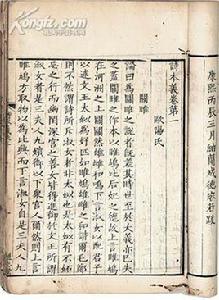 康熙丙辰三月納蘭成德容若跋
詩本義卷第一
歐陽氏
關雎
論曰為關雎之說者既差其時世至於大義亦已失
之蓋關雎之作本以雎鳩比后妃之德故上言雎鳩
在河洲之上關關然雄雌和鳴下言淑女以配君子
以述文王太姒為好匹如雎鳩雄雌之和諧爾毛鄭
則不然謂詩所斥淑女者非太姒也是太姒有不妒
忌之行而幽閨深宮之善女皆得進御於文王所謂
淑女者是三夫人九嬪御以下衆宮人爾然則上言
雎鳩方取物以為比興而下言淑女自是三夫人九